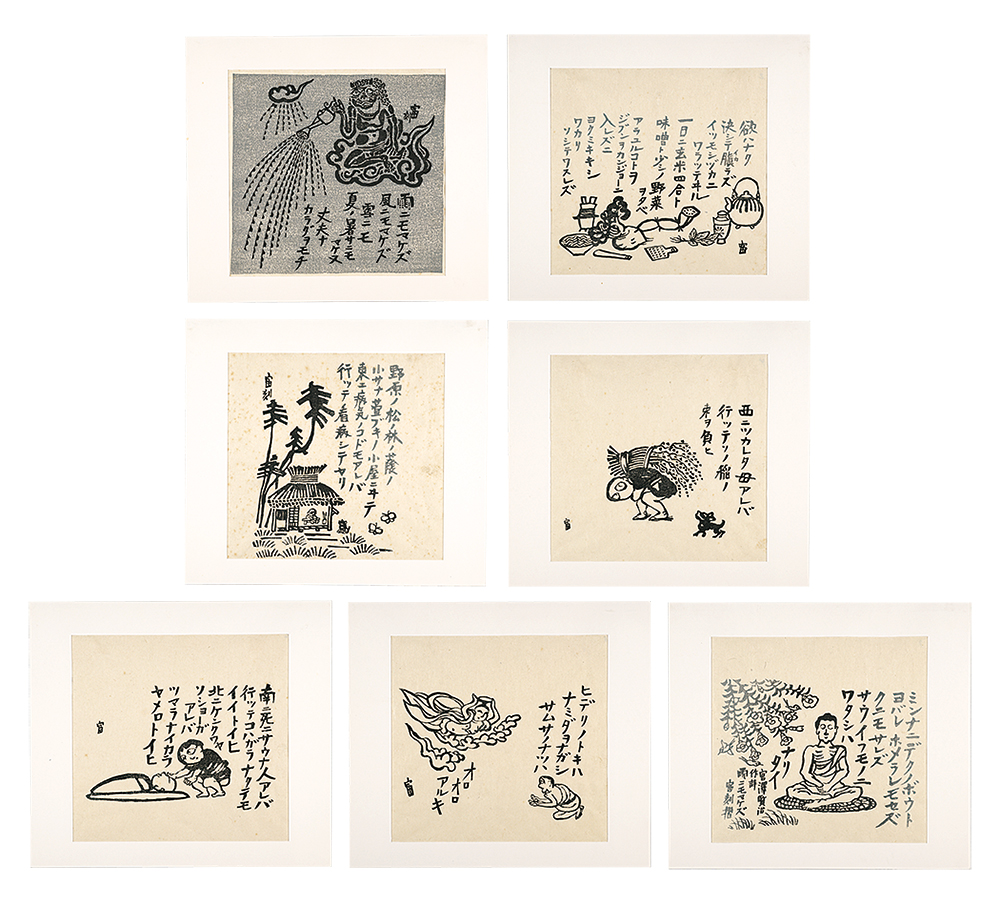 雨ニモマケズ
風ニモマケズ
雪ニモ
夏ノ暑サニモ
マケヌ
丈夫ナ
カラダヲモチ
欲ハナク
決シテ瞋ラズ
イツモシヅカニ
ワラッテヰル
一日ニ玄米四合ト
味噌ト少シノ野菜
ヲタベ
アラユルコトヲ
ジブンヲカンジョーニ
入レズニ
ヨクミキキシ
ワカリ
ソシテワスレズ
野原ノ松ノ林ノ蔭ノ
小サナ萱ブキノ小屋ニヰテ
東ニ病気ノコドモアレバ
行ッテ看病シテヤリ
西ニツカレタ母アレバ
行ッテソノ稲ノ
束ヲ負ヒ
南ニ死ニサウナ人アレバ
行ッテコハガラナクテモ
イイトイヒ
北ニケンクヮヤ
ソショーガ
アレバ
ツマラナイカラ
ヤメロトイヒ
ヒデリノトキハ
ナミダヲナガシ
サムサノナツハ
オロ
オロ
アルキ
ミンナニデクノボウト
ヨバレ ホメラレモセズ
クニモサレズ
サウイフモノニ
ワタシハ
ナリ
タイ
宮澤賢治
作詩
雨ニモマケズ